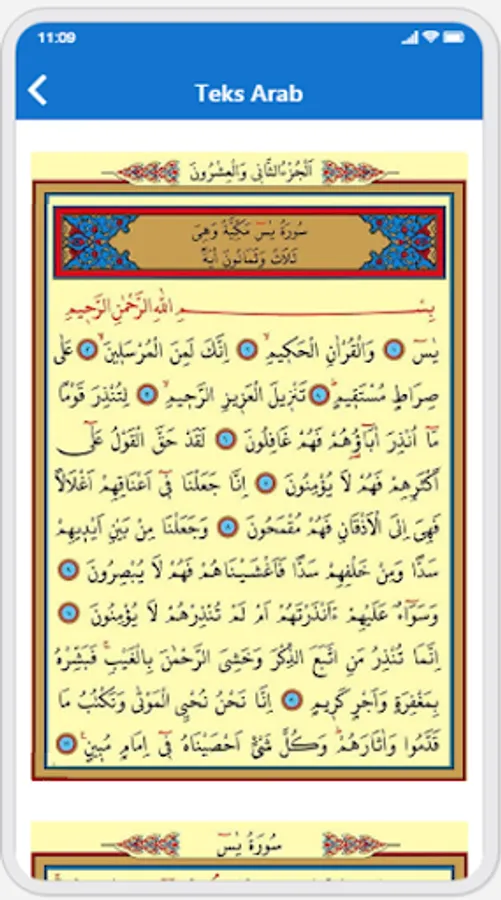 11:09
Teks Arab
اَلْجُزْءُ الثَّانِي وَالْعِشْرُونَ
سُورَةُ يٰسٓ مَكِّيَّةٌ وَهِيَ
ثَلَاثٌ وَثَمَانُونَ اٰيَةً
بِسْمِ اللّٰهِ الرَّحْمٰنِ الرَّحٖيمِ
يٰسٓ ١ وَالْقُرْاٰنِ الْحَكٖيمِ ٢ اِنَّكَ لَمِنَ الْمُرْسَلٖينَ ٣ عَلٰى
صِرَاطٍ مُسْتَقٖيمٍ ٤ تَنْزٖيلَ الْعَزٖيزِ الرَّحٖيمِ ٥ لِتُنْذِرَ قَوْمًا
مَٓا اُنْذِرَ اٰبَٓاؤُ۬هُمْ فَهُمْ غَافِلُونَ ٦ لَقَدْ حَقَّ الْقَوْلُ عَلٰٓى
اَكْثَرِهِمْ فَهُمْ لَا يُؤْمِنُونَ ٧ اِنَّا جَعَلْنَا فٖٓي اَعْنَاقِهِمْ اَغْلَالًا
فَهِيَ اِلَى الْاَذْقَانِ فَهُمْ مُقْمَحُونَ ٨ وَجَعَلْنَا مِنْ بَيْنِ اَيْدٖيهِمْ
سَدًّا وَمِنْ خَلْفِهِمْ سَدًّا فَاَغْشَيْنَاهُمْ فَهُمْ لَا يُبْصِرُونَ ٩
وَسَوَٓاءٌ عَلَيْهِمْ ءَاَنْذَرْتَهُمْ اَمْ لَمْ تُنْذِرْهُمْ لَا يُؤْمِنُونَ ١٠
اِنَّمَا تُنْذِرُ مَنِ اتَّبَعَ الذِّكْرَ وَخَشِيَ الرَّحْمٰنَ بِالْغَيْبِۚ فَبَشِّرْهُ
بِمَغْفِرَةٍ وَاَجْرٍ كَرٖيمٍ ١١ اِنَّا نَحْنُ نُحْيِ الْمَوْتٰى وَنَكْتُبُ مَا
قَدَّمُوا وَاٰثَارَهُمْۜ وَكُلَّ شَيْءٍ اَحْصَيْنَاهُ فٖٓي اِمَامٍ مُبٖينٍ ١٢
سُورَةُ يٰسٓ